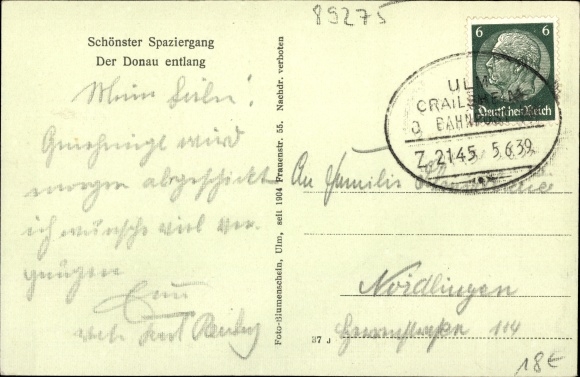 89275
Schönster Spaziergang
Der Donau entlang
Mein
Genehmigt wird
morgen abgeschickt
ich wünsche viel Ver-
gnügen
Karl
Foto-Blumenschein, Ulm, seit 1904 Frauenstr. 55. Nachdr. verboten
37 J
6 6
Deutsches Reich
ULM
CRAILSHEIM
BAHNPOST
Z. 2145 5.6.39
An Familie
Nördlingen
114
18€